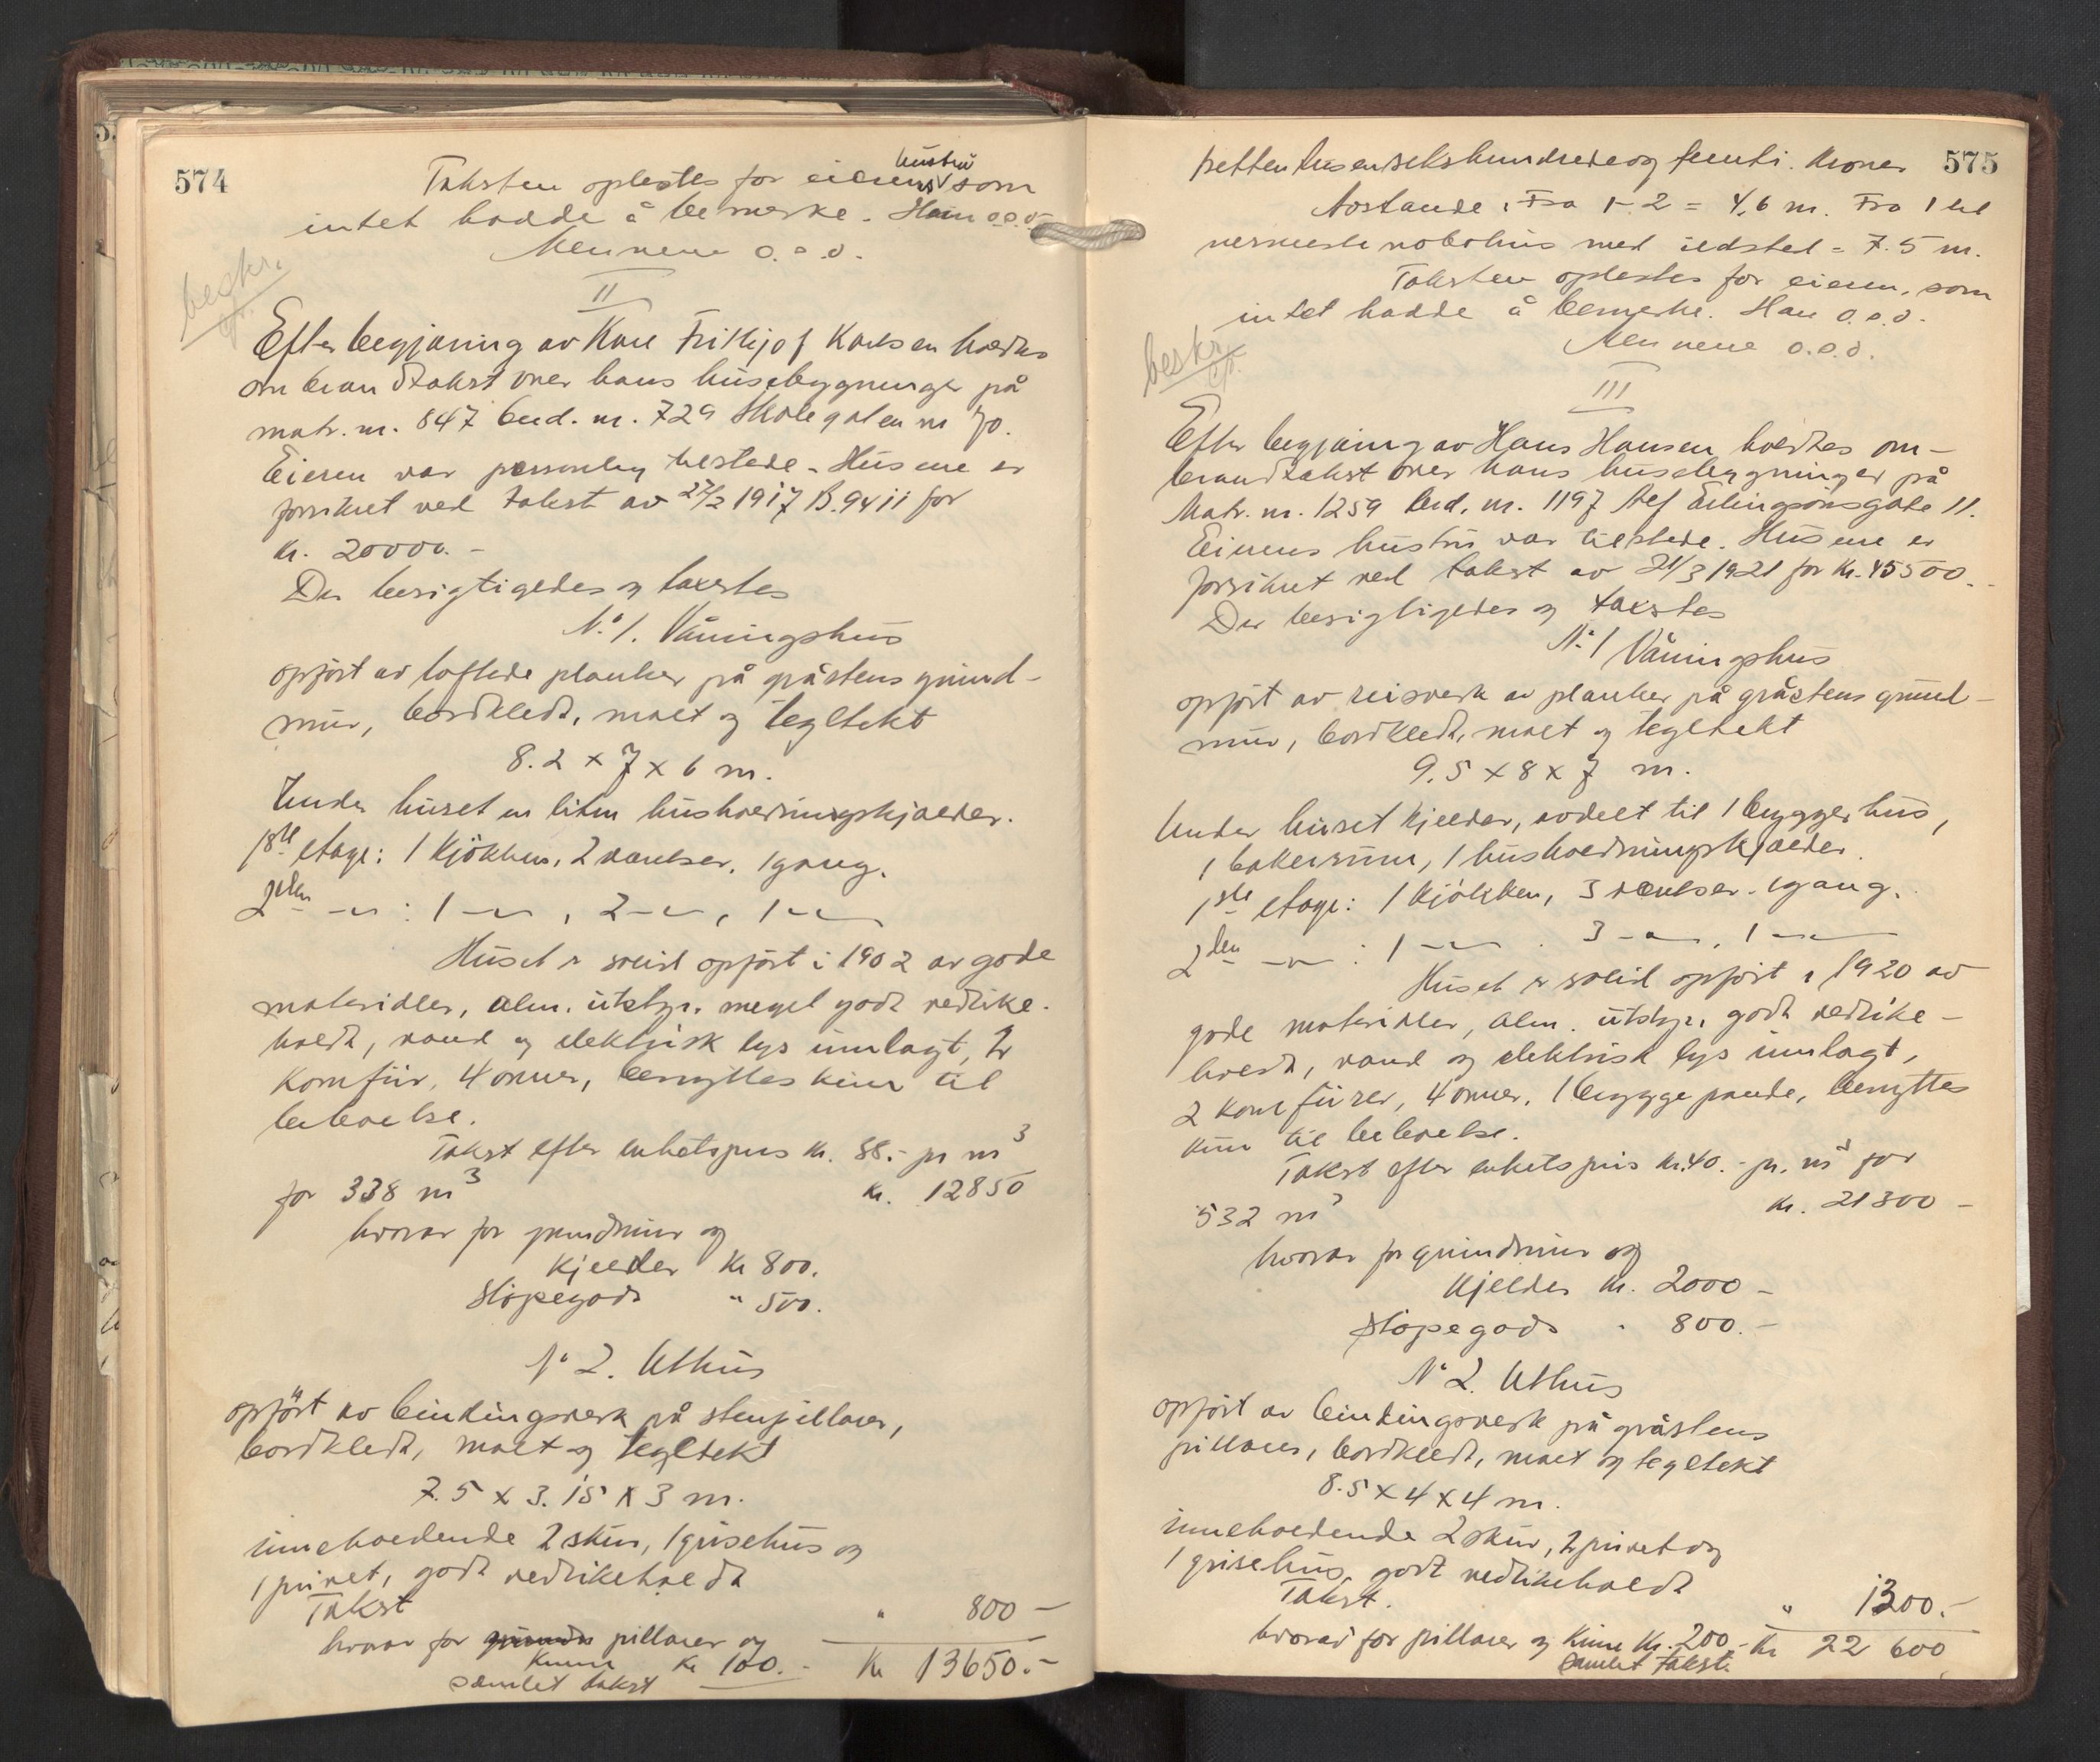 574
Taksten oplestes for eierens hustru som
intet hadde å bemerke. Hun o.o.o.
Mennene o.o.o.
beskr.
II
Efter begjæring av Kare Fritjof Karlsen holdtes
om brandtakst over hans husebygninger på
matr. nr. 847 bud. nr. 729 Skolegaten nr 70.
Eieren var personlig tilstede. Husene er
forsikret ved takst av 27/2 1917 B. 9411 for
kr. 20000.-
Der besigtigedes og taxertes
No 1. Våningshus
opført av loftede planker på gråstens grund-
mur, bordkledt, malt og tegltekt
8.2 x 7 x 6 m.
Under huset en liten husholdningskjælder.
1ste etage: 1 kjøkken, 2 værelser, 1 gang.
2den -"- : 1 -"- , 2 -"- , 1 -"-
Huset er solid opført i 1902 av gode
materialer, alm. utstyr, meget godt vedlike-
holdt, vand og elektrisk lys innlagt, 2
komfür, 4 ovner, benyttes kun til
beboelse.
Takst efter enhetspris kr. 38.- pr m3
for 338 m3 kr. 12850
hvorav for grundmur og
kjelder kr 800.
Støpegods " 500.
No 2. Uthus
opført av bindingsverk på stenpillarer,
bordkledt, malt og tegltekt
7.5 x 3.15 x 3 m.
inneholdende 2 skur, 1 grisehus og
1 privet, godt vedlikeholdt
Takst " 800 -
hvorav for grunds pillarer og
kume kr 100.- Kr 13650.-
samlet takst
575
trettentusensekshundredeogfemti. Kroner
Avstande: Fra 1-2 = 4,6 m. Fra 1 til
nermeste nabohus med ildsted = 7.5 m.
Taksten oplestes for eieren, som
intet hadde å bemerke. Han o.o.o.
Mennene o.o.o.
beskr.
III
Efter begjæring av Hans Hansen holdtes om-
brandtakst over hans husebygninger på
Matr. nr. 1259 bud. nr. 1197 Alf Erlingsønsgate 11.
Eierens hustru var tilstede. Husene er
forsikret ved takst av 21/3 1921 for kr. 45500.-
Der besigtigedes og taxertes
No 1 Våningshus
opført av reisverk av planker på gråstens grund-
mur, bordkledt, malt og tegltekt
9.5 x 8 x 7 m.
Under huset kjelder, avdelt til 1 bryggerhus,
1 bakerrum, 1 husholdningskjælder.
1ste etage: 1 kjøkken, 3 værelser. 1 gang.
2den -"- : 1 -"- . 3 -"- , 1 -"-
Huset er solid opført i 1920 av
gode materialer, alm. utstyr, godt vedlike-
holdt, vand og elektrisk lys innlagt,
2 komfürer, 4 ovner, 1 bryggepande, benyttes
kun til beboelse.
Takst efter enhetspris kr. 40.- pr. m3 for
532 m3 kr. 21300 -
hvorav for grundmur og
kjelder kr. 2000 -
Støpegods " 800.-
No 2. Uthus
opført av bindingsverk på gråstens
pillarer, bordkledt, malt og tegltekt
8.5 x 4 x 4 m.
inneholdende 2 skur, 2 privet og
1 grisehus, godt vedlikeholdt
Takst. " 1300.-
hvorav for pillarer og kume kr. 200.- Kr 22 600
samlet takst.